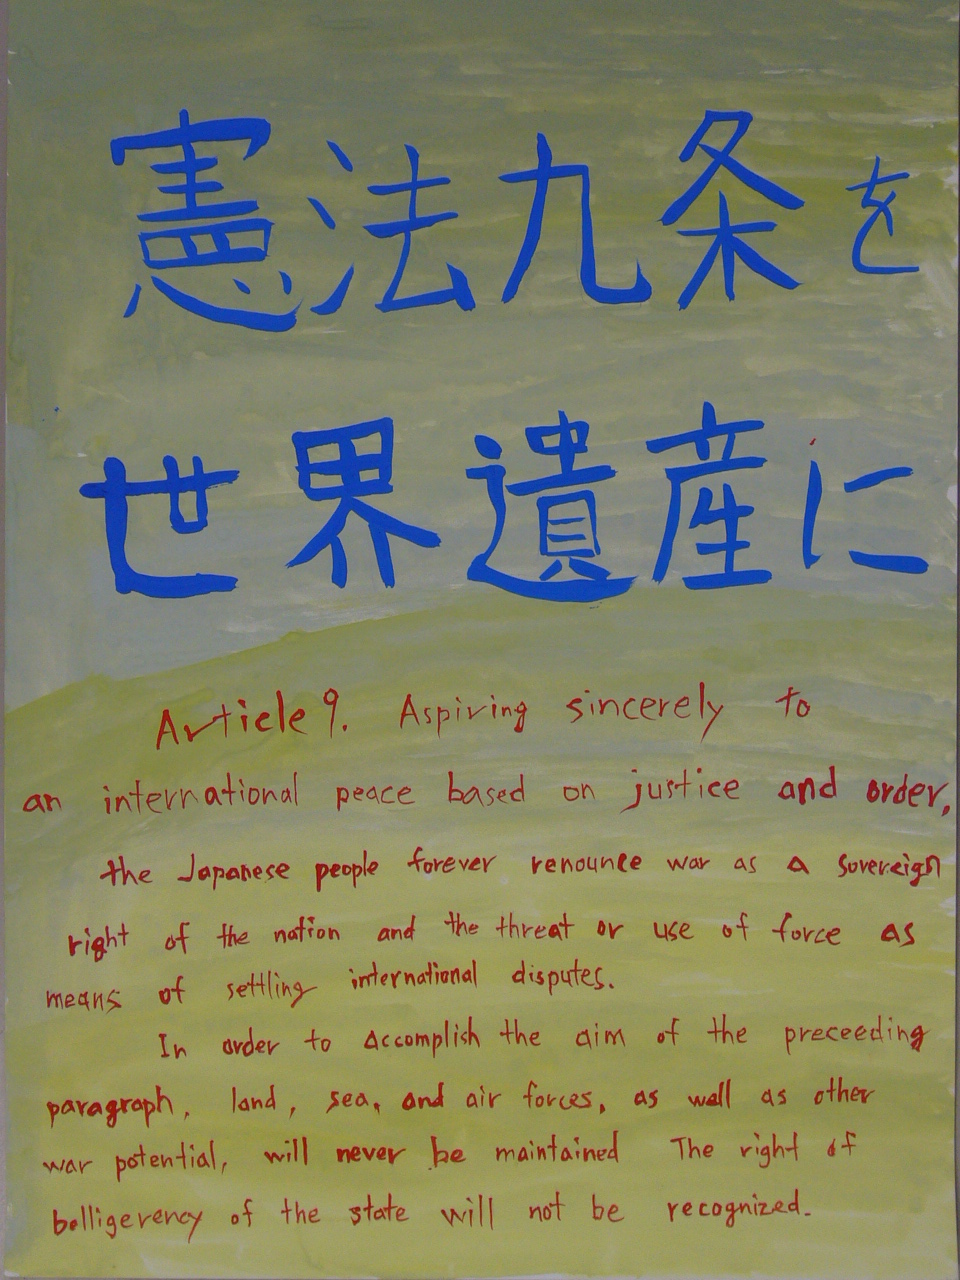 憲法九条を
世界遺産に
Article 9. Aspiring sincerely to
an international peace based on justice and order,
the Japanese people forever renounce war as a sovereign
right of the nation and the threat or use of force as
means of settling international disputes.
In order to accomplish the aim of the preceeding
paragraph, land, sea, and air forces, as well as other
war potential, will never be maintained The right of
belligerency of the state will not be recognized.